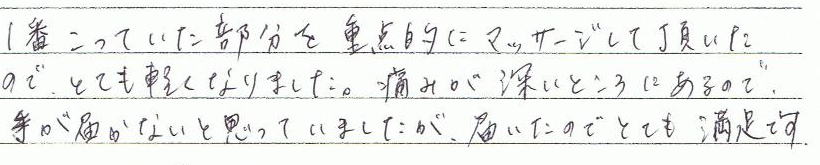 1番こっていた部分を重点的にマッサージして頂いた
ので、とても軽くなりました。痛みが深いところにあるので、
手が届かないと思っていましたが、届いたのでとても満足です.